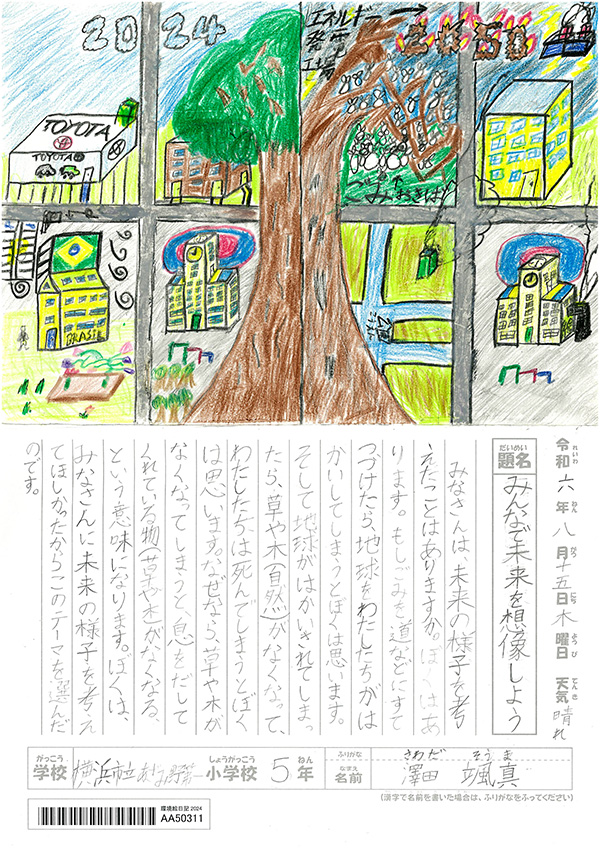 2024
エネルギー
発電
工場
TOYOTA
TOYOTA
ごみおきば
BRASIL
令和六年八月十五日木曜日 天気 晴れ
れいわ ねん がつ にち ようび てんき
だいめい
題名 みんなで未来を想像しよう
みなさんは、未来の様子を考
えたことはありますか。ぼくはあ
ります。もしごみを道などにすて
つづけたら、地球をわたしたちがは
かいしてしまうとぼくは思います。
そして地球がはかいされてしまっ
たら、草や木(自然)がなくなって、
わたしたちは死んでしまうとぼく
は思います。なぜなら、草や木が
なくなってしまうと、息)をだして
くれている物(草や木)がなくなる、
という意味になります。ぼくは、
みなさんに未来の様子を考え
てほしかったからこのテーマを選んだ
のです。
がっこう しょうがっこう ねん ふりがな さわだ そうま
学校 横浜市立 小学校 5年 なまえ 名前 澤田 颯真
(漢字で名前を書いた場合は、ふりがなをふってください)
環境絵日記 2024
AA50311